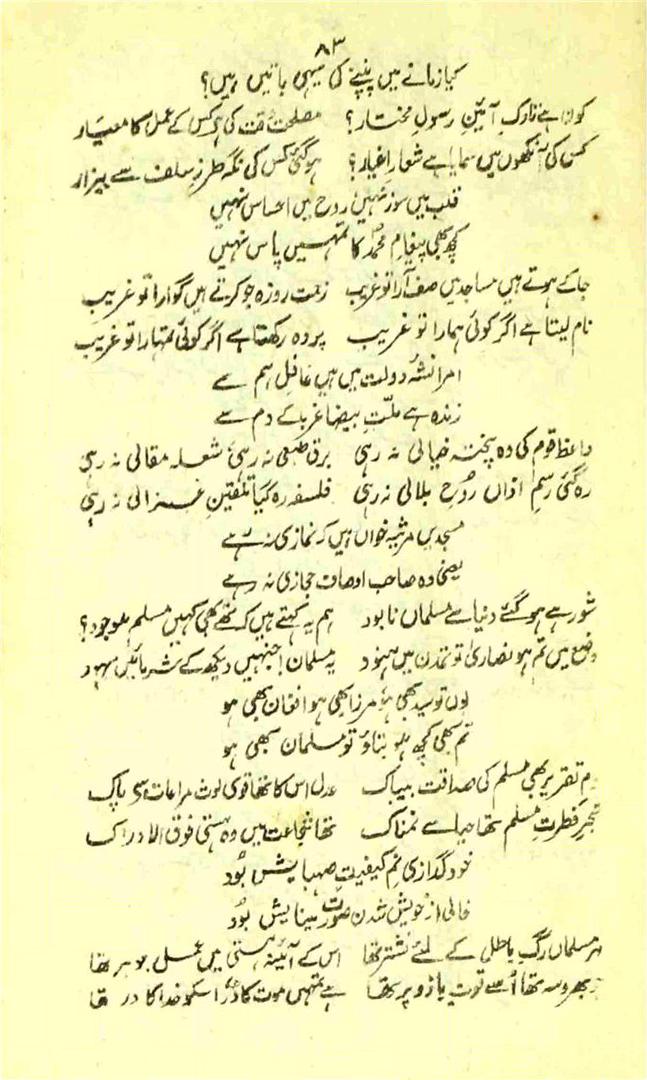 ۸۳
کیا زمانے میں پنپنے کی یہی باتیں ہیں؟
کون ہے تارکِ آئینِ رسولِ مختار؟ مصلحت وقت کی ہے کس کے عمل کا معیار
کس کی آنکھوں میں سمایا ہے شعارِ اغیار؟ ہو گئی کس کی نگہ طرزِ سلف سے بیزار
قلب میں سوز نہیں روح میں احساس نہیں
کچھ بھی پیغامِ محمدؐ کا تمہیں پاس نہیں
جا کے ہوتے ہیں مساجد میں صف آرا تو غریب زحمت روزہ جو کرتے ہیں گوارا تو غریب
نام لیتا ہے اگر کوئی ہمارا تو غریب پردہ رکھتا ہے اگر کوئی تمہارا تو غریب
امرا نشۂ دولت میں ہیں غافل ہم سے
زندہ ہے ملّتِ بیضا غربا کے دم سے
واعظ قوم کی وہ پختہ خیالی نہ رہی برق طبعی نہ رہی شعلہ مقالی نہ رہی
رہ گئی رسمِ اذاں روُحِ بلالی نہ رہی فلسفہ رہ گیا تلقینِ غزالی نہ رہی
مسجدیں مرثیہ خواں ہیں کہ نمازی نہ رہے
یعنی وہ صاحب اوصاف حجازی نہ رہے
شور ہے ہو گئے دنیا سے مسلماں نابود ہم یہ کہتے ہیں کہ تھے بھی کہیں مسلم موجود؟
وضع میں تم ہو نصاریٰ تو تمدن میں ہنود یہ مسلمان! جنہیں دیکھ کے شرمائیں یہود
یوں تو سید بھی ہو مرزا بھی ہو افغان بھی ہو
تم سبھی کچھ ہو بتاؤ تو مسلمان بھی ہو
دمِ تقریر تھی مسلم کی صداقت بیباک عدل اس کا تھا قوی لوث مراعات سے پاک
شجرِ فطرتِ مسلم تھا حیا سے نمناک تھا شجاعت میں وہ ہستی فوق الادراک
خود گدازی نمِ کیفیتِ صہبایش بُود
خالی از خویش شدن صورت مینایش بُود
ہر مسلماں رگِ باطل کے لئے نشتر تھا اس کے آئینۂ ہستی میں عمل جوہر تھا
جو بھروسہ تھا اُسے قوتِ بازو پر تھا ہے تمہیں موت کا ڈر اسکو خدا کا ڈر تھا